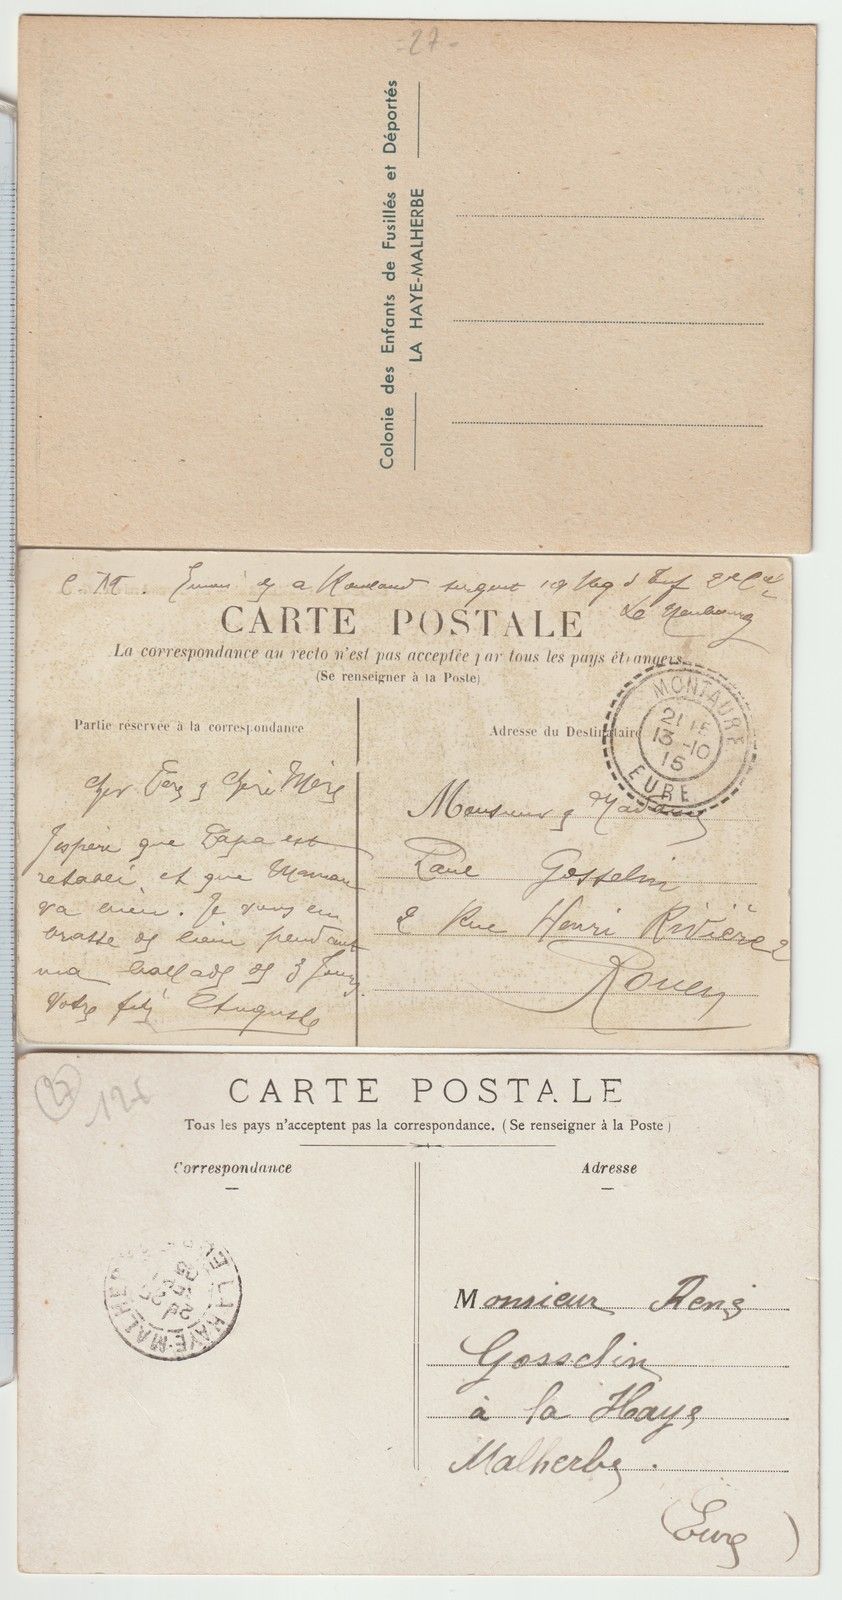 -27-
Colonie des Enfants de Fusillés et Déportés
LA HAYE-MALHERBE
C. M. a sergent 19
Le Neubourg
CARTE POSTALE
La correspondance au recto n'est pas acceptée par tous les pays étrangers
(Se renseigner à la Poste)
Partie réservée à la correspondance
Adresse du Destinataire
MONTAURE
21 15
13 -10
15
EURE
Cher Père & Chère Mère
J'espère que Papa est
retabli et que Maman
va bien. Je vous em
brasse bien pendant
ma ballade de 3 Jours
Votre fils Auguste
Monsieur & Madame
Paul Gosselin
2 Rue Henri Rivière 2
Rouen
27
125
CARTE POSTALE
Tous les pays n'acceptent pas la correspondance. (Se renseigner à la Poste)
Correspondance
Adresse
LA HAYE-MALHERBE
Monsieur René
Gosselin
à la Haye
Malherbe.
(Eure)